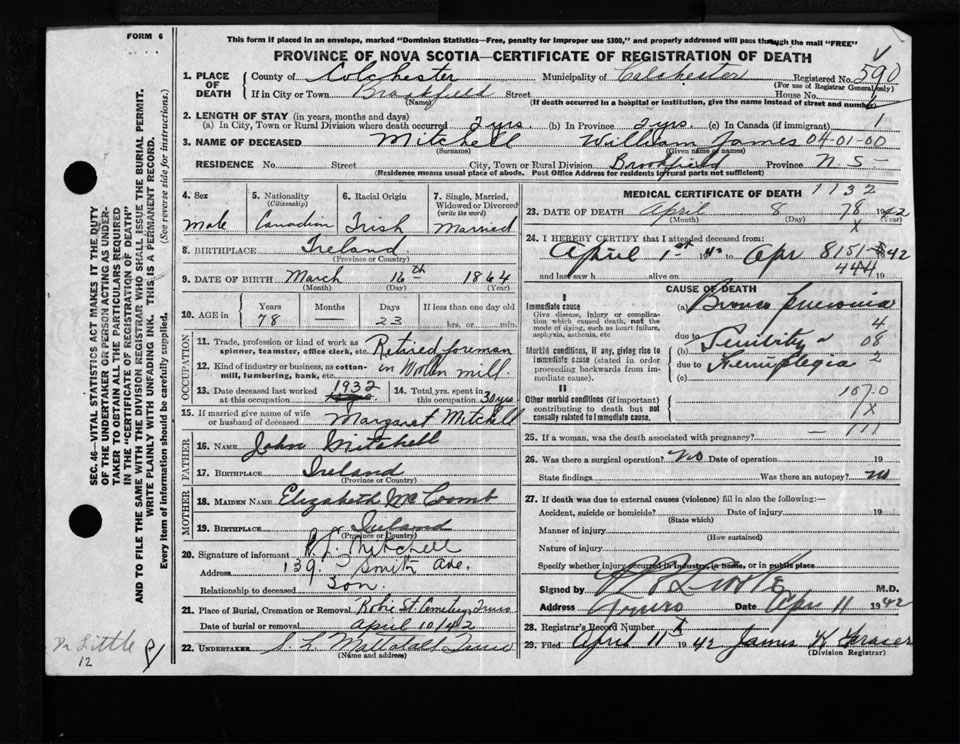 FORM 6
This form if placed in an envelope, marked "Dominion Statistics—Free, penalty for improper use $300," and properly addressed will pass through the mail "FREE"
PROVINCE OF NOVA SCOTIA—CERTIFICATE OF REGISTRATION OF DEATH
1. PLACE OF DEATH County of Colchester Municipality of Colchester Registered No. 590
(For use of Registrar General only)
If in City or Town Brookfield Street House No.
(Name) (If death occurred in a hospital or institution, give the name instead of street and number)
2. LENGTH OF STAY (in years, months and days)
(a) In City, Town or Rural Division where death occurred 2 yrs. (b) In Province 2 yrs. (c) In Canada (if immigrant) 1
3. NAME OF DECEASED Mitchell William James 04-01-00
(Surname) (Given name or names)
RESIDENCE No. Street City, Town or Rural Division Brookfield Province N.S-
(Residence means usual place of abode. Post Office Address for residents in rural parts not sufficient)
4. Sex 5. Nationality (Citizenship) 6. Racial Origin 7. Single, Married, Widowed or Divorced (write the word)
Male Canadian Irish Married
8. BIRTHPLACE Ireland
(Province or Country)
9. DATE OF BIRTH March 16th 1864
(Month) (Day) (Year)
10. AGE in Years Months Days If less than one day old
78 — 23 hrs. or min.
OCCUPATION
11. Trade, profession or kind of work as spinner, teamster, office clerk, etc. Retired foreman
12. Kind of industry or business, as cotton-mill, lumbering, bank, etc. in Wolen mill.
13. Date deceased last worked at this occupation 1932 14. Total yrs. spent in this occupation 30 yrs
15. If married give name of wife or husband of deceased Margaret Mitchell
FATHER
16. NAME John Mitchell
17. BIRTHPLACE Ireland
(Province or Country)
MOTHER
18. MAIDEN NAME Elizabeth McComb
19. BIRTHPLACE Ireland
(Province or Country)
20. Signature of informant Mitchell
Address 139 Smith Ave.
Relationship to deceased Son.
21. Place of Burial, Cremation or Removal Robie St. Cemetery Truro
Date of burial or removal April 10/42
22. UNDERTAKER Truro
(Name and address)
MEDICAL CERTIFICATE OF DEATH 1132
23. DATE OF DEATH April 8 78 1942
(Month) (Day) (Year)
x
24. I HEREBY CERTIFY that I attended deceased from:
April 1st 19 42 to Apr 8 151 1942
and last saw h alive on 444 19
CAUSE OF DEATH
I
Immediate cause
Give disease, injury or complication which caused death, not the mode of dying, such as heart failure, asphyxia, asthenia, etc
(a) Bronco pneumonia
4
due to
Morbid conditions, if any, giving rise to immediate cause (stated in order proceeding backwards from immediate cause).
(b) Senility - 08
due to Hemiplegia 2
(c)
II
Other morbid conditions (if important) contributing to death but not causally related to immediate cause.
107.0
1X
25. If a woman, was the death associated with pregnancy? - 111
26. Was there a surgical operation? No Date of operation 19
State findings Was there an autopsy? No
27. If death was due to external causes (violence) fill in also the following:—
Accident, suicide or homicide? Date of injury 19
(State which)
Manner of injury
(How sustained)
Nature of injury
Specify whether injury occurred in industry, in home, or in public place
Signed by M.D.
Address Truro Date Apr 11 1942
28. Registrar's Record Number
29. Filed April 11 19 42 James K Fraser
(Division Registrar)
SEC. 46—VITAL STATISTICS ACT MAKES IT THE DUTY OF THE UNDERTAKER OR PERSON ACTING AS UNDERTAKER TO OBTAIN ALL THE PARTICULARS REQUIRED IN THE "CERTIFICATE OF REGISTRATION OF DEATH"
AND TO FILE THE SAME WITH THE DIVISION REGISTRAR WHO SHALL ISSUE THE BURIAL PERMIT.
WRITE PLAINLY WITH UNFADING INK. THIS IS A PERMANENT RECORD.
Every item of information should be carefully supplied. (See reverse side for instructions.)
Dr Little
12